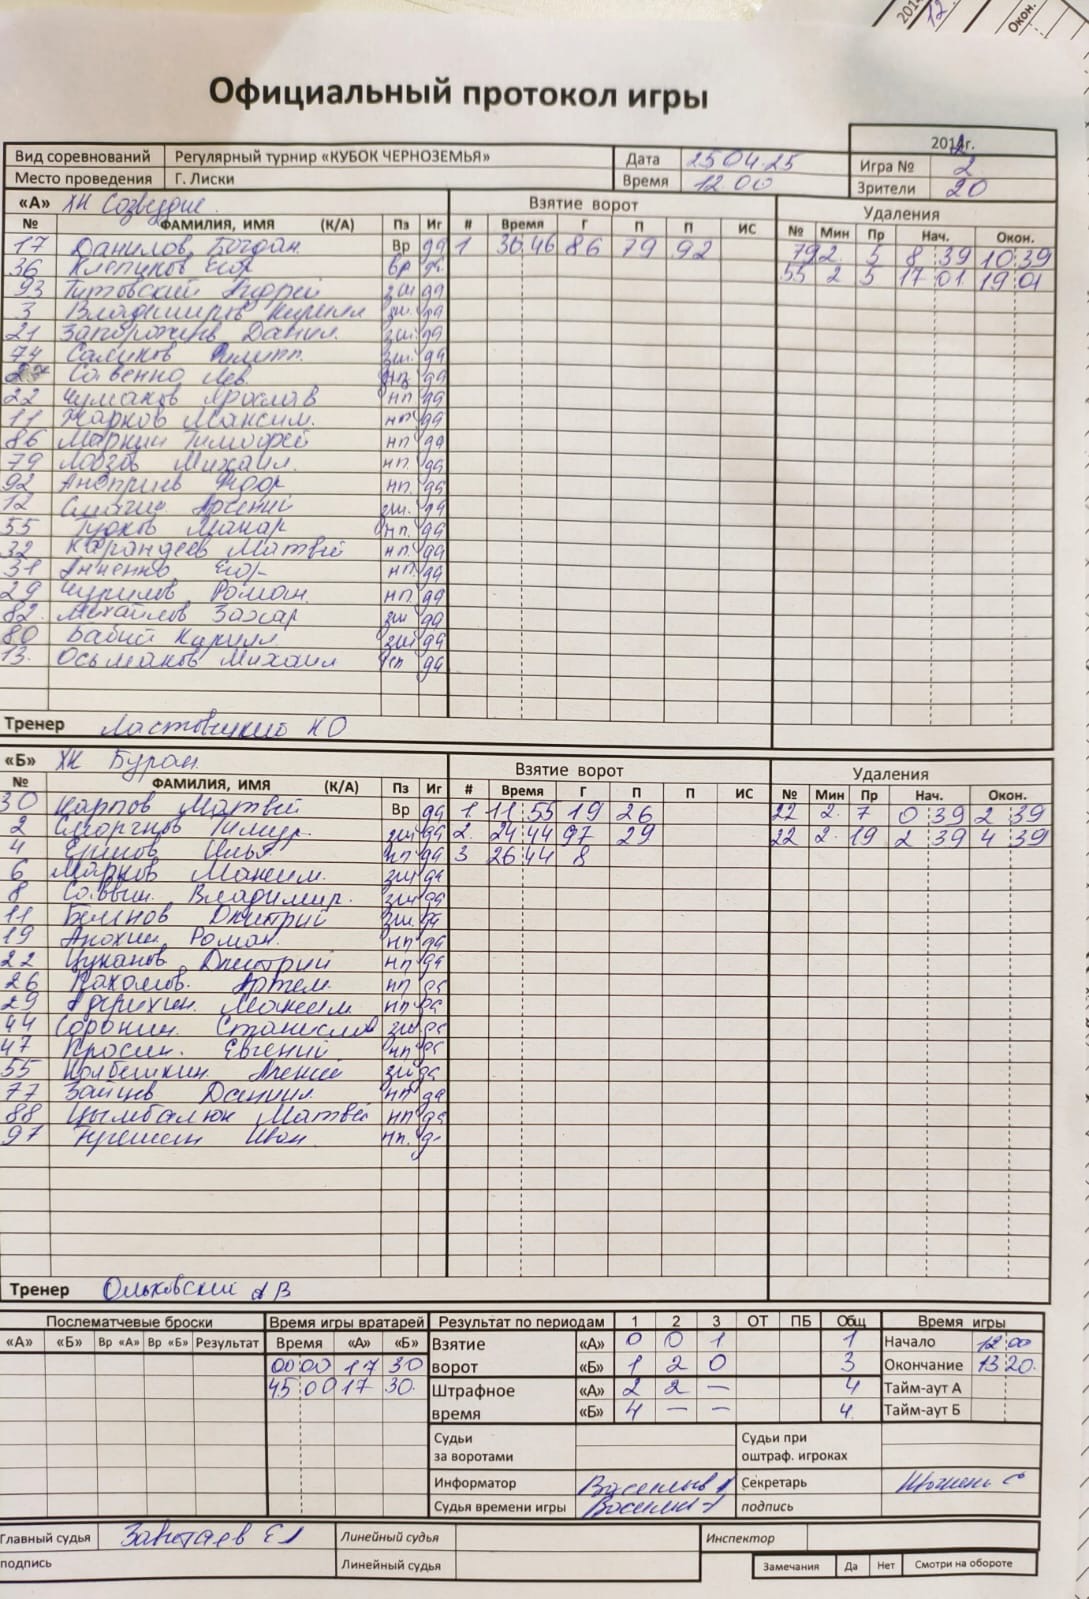 Официальный протокол игры
Вид соревнований Регулярный турнир «КУБОК ЧЕРНОЗЕМЬЯ» Дата 25 04.25 Игра № 2
Место проведения Г. Лиски Время 12 00 Зрители 20
«А» ХК Созвездие Взятие ворот Удаления
№ ФАМИЛИЯ, ИМЯ (К/А) Пз Иг # Время Г П П ИС № Мин Пр Нач. Окон.
17 Данилов Богдан Вр да 1 30 46 86 79 92 79 2 5 8 39 10 39
36 Егор вр да 55 2 5 17 01 19 01
93 Титовский Андрей зщ да
3 Владимиров Кирилл зщ да
21 Запорожцев Данил. зщ. да
74 Саликов Филипп зщ. да
Савенко Лев нп да
22 Чумаков Ярослав нп да
11 Жарков Максим. нп да
86 Маркин Тимофей нп да
79 Лобзов Михаил. нп. да
92 Федор нп. да
12 Арсений зщ. да
55 Гудков Макар нп. да
32 Карандеев Матвей нп. да
31 Янченко Егор нп да
29 Чурилов Роман. нп да
82. Михайлов Захар зщ да
80 Бабий Кирилл зщ да
13. Осьмаков Михаил нп да
Тренер
«Б» ХК Буран Взятие ворот Удаления
№ ФАМИЛИЯ, ИМЯ (К/А) Пз Иг # Время Г П П ИС № Мин Пр Нач. Окон.
30 Карпов Матвей Вр да 1 11 55 19 26 22 2. 7 0 39 2 39
2 Тимур. зщ да 2. 24 44 97 29 22 2. 19 2 39 4 39
4 Илья нп да 3 26 44 8
6 Марков Максим. зщ да
8 Саввин Владимир. зщ да
11 Дмитрий зщ да
19 Анохин Роман. нп да
22 Цуканов Дмитрий нп да
26 Пахомов. Артем. нп да
29 Максим нп да
44 Сорокин. Станислав зщ да
47 Евгений нп да
55 Колбешкин зщ да
77 Зайцев Даниил. нп да
88 Цымбалюк Матвей нп да
97 Иван нп.
Тренер Ольховский АВ
Послематчевые броски Время игры вратарей Результат по периодам 1 2 3 ОТ ПБ Общ Время игры
«А» «Б» Вр «А» Вр «Б» Результат Время «А» «Б» Взятие «А» 0 0 1 1 Начало 12 00
00 00 17 30 ворот «Б» 1 2 0 3 Окончание 13 20.
45 00 17 30. Штрафное «А» 2 2 — 4 Тайм-аут А
время «Б» 4 — — 4. Тайм-аут Б
Судьи за воротами Судьи при оштраф. игроках
Информатор Секретарь
Судья времени игры подпись
Главный судья Линейный судья Инспектор
подпись Линейный судья Замечания Да Нет Смотри на обороте